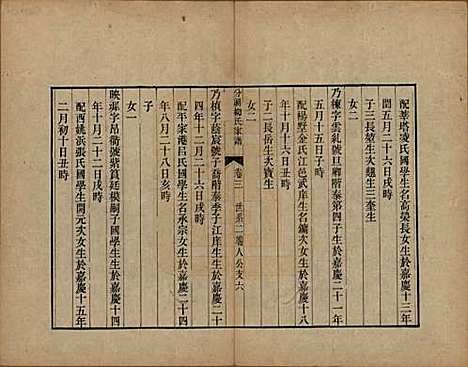 配莘塔凌氏國學生名高榮長女生於嘉慶十三年
閏五月二十六日戌時
子三長堃生次麴生三奎生
女二
乃棟字雲組號旦卿階泰第四子生於嘉慶二十一年
五月十五日子時
配楊墅金氏江邑武庠生名鏞次女生於嘉慶十八
年十月十七日戌時
子二長岳生次寶生
女二
分湖柳氏家譜
卷三 世系二 春人公支六
乃楨字蔭宸號子喬階泰季子江庠生生於嘉慶二十
四年十一月二十六日寅時
配平家港呂氏國學生名承宗女生於嘉慶二十四
年八月二十八日亥時
子
女一
映墀字昂衢號紫貢廷模嗣子國學生生於嘉慶十四
年十月二十二日戌時
配西姚浜張氏國學生開元次女生於嘉慶十五年
二月初十日丑時